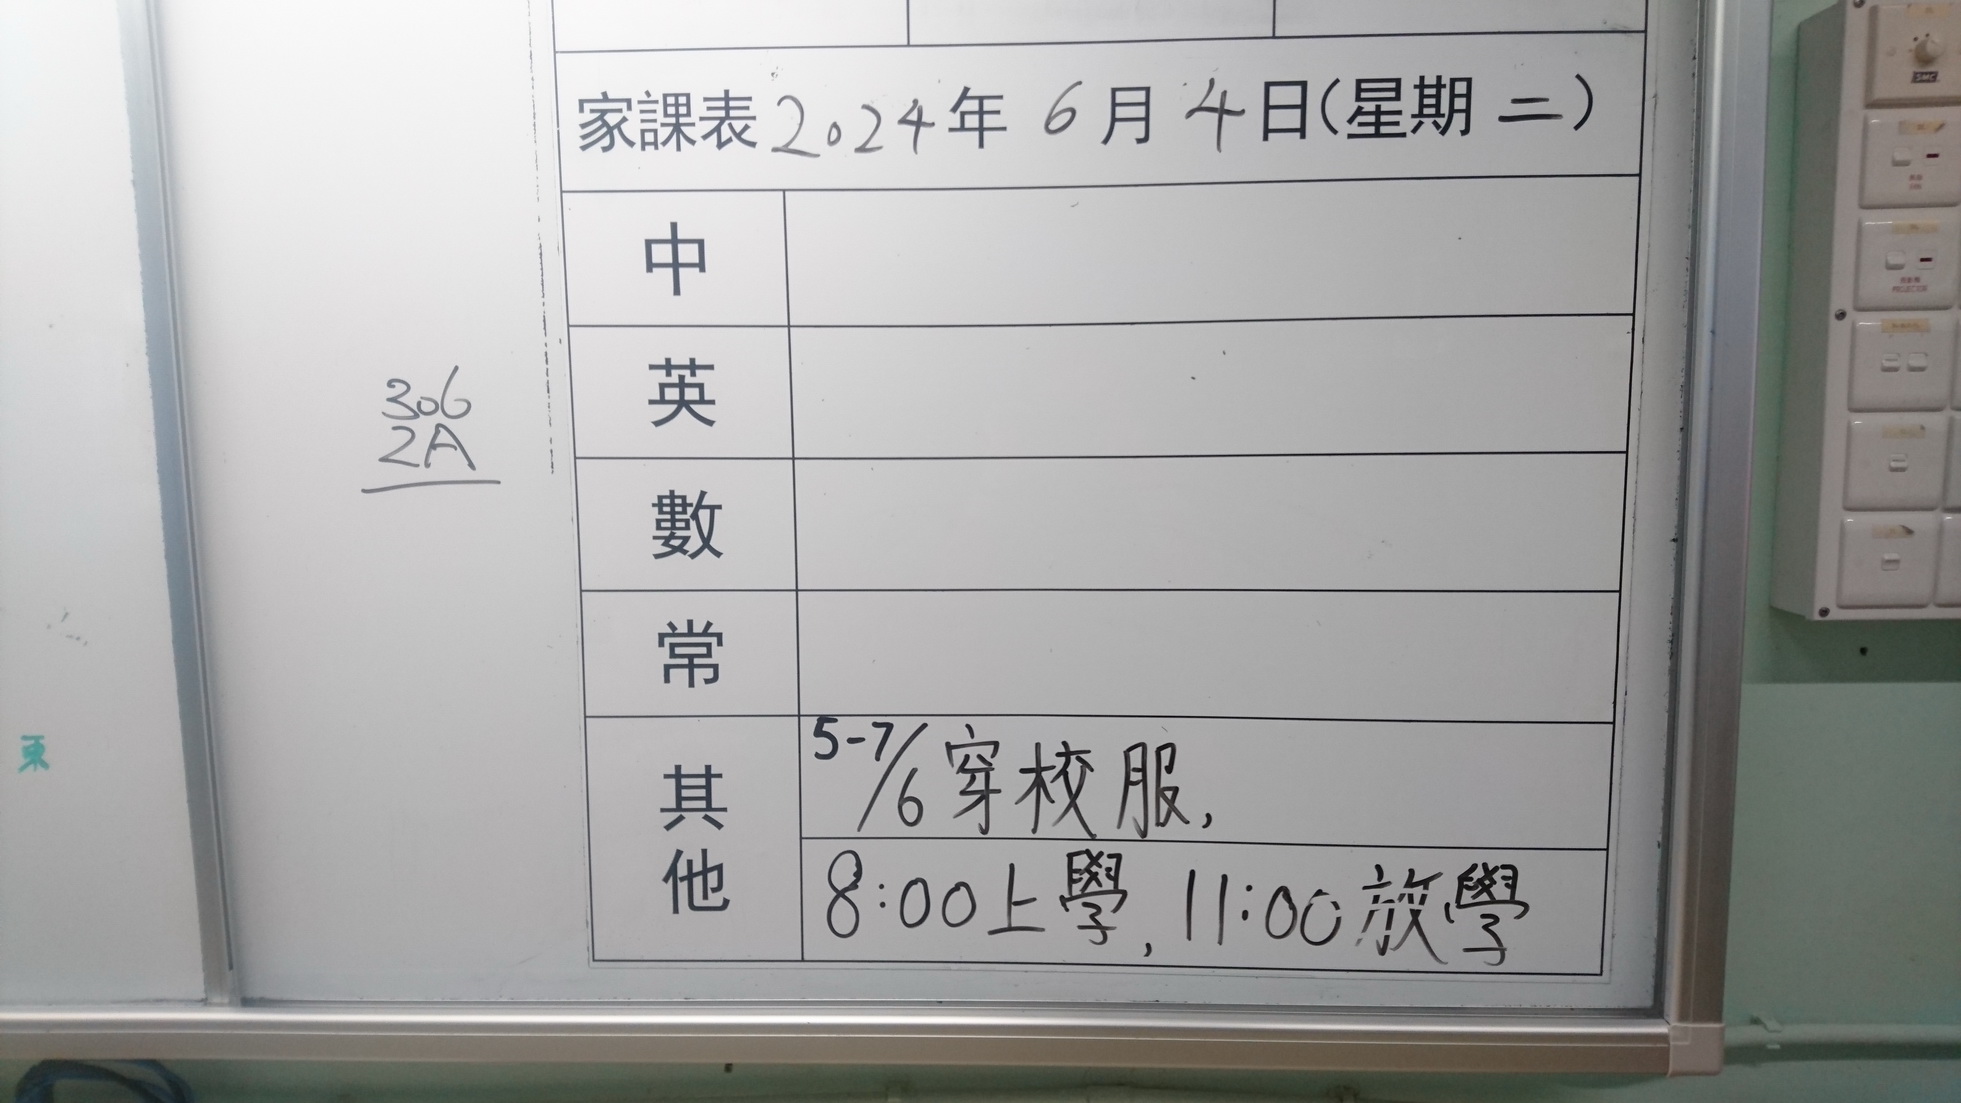 家課表2024年 6月 4日(星期 二)
中
英
306
2A
數
常
其他
5-7/6 穿校服,
8:00上學, 11:00放學
SMC
PROJECTOR